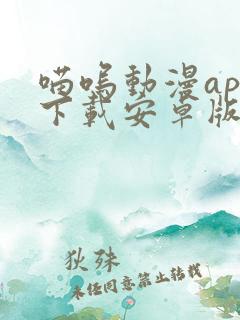 喵呜動漫ap
下載安卓版
狄殊
未经同意禁止转载